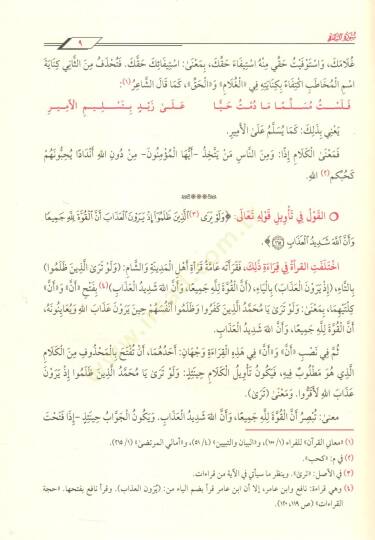 ٩
غُلَامَكَ، وَاسْتَوْفَيْتُ حَقِّي مِنْهُ اسْتِيفَاءَ حَقِّكَ، بِمَعْنَى: اسْتِيفَائِكَ حَقَّكَ. فَتُحْذَفُ مِنَ الثَّانِي كِنَايَةَ
اسْمِ الْمُخَاطَبِ اكْتِفَاءً بِكِنَايَتِهِ فِي «الْغُلَامِ» وَ«الْحَقِّ»، كَمَا قَالَ الشَّاعِرُ(١):
فَلَسْتُ مُسَلِّمًا مَا دُمْتُ حَيًّا عَلَى زَيْدٍ بِتَسْلِيمِ الْأَمِيرِ
يَعْنِي بِذَلِكَ: كَمَا يُسَلَّمُ عَلَى الْأَمِيرِ.
فَمَعْنَى الْكَلَامِ إِذًا: وَمِنَ النَّاسِ مَنْ يَتَّخِذُ -أَيُّهَا الْمُؤْمِنُونَ- مِنْ دُونِ اللَّهِ أَنْدَادًا يُحِبُّونَهُمْ
كَحُبِّكُمُ(٢) اللَّهَ.
○ الْقَوْلُ فِي تَأْوِيلِ قَوْلِهِ تَعَالَى: ﴿وَلَوْ يَرَى(٣) الَّذِينَ ظَلَمُوا إِذْ يَرَوْنَ الْعَذَابَ أَنَّ الْقُوَّةَ لِلَّهِ جَمِيعًا
وَأَنَّ اللَّهَ شَدِيدُ الْعَذَابِ ﴿١٦٥﴾﴾.
اخْتَلَفَتِ الْقَرَأَةُ فِي قِرَاءَةِ ذَلِكَ، فَقَرَأَتْهُ عَامَّةُ قَرَأَةِ أَهْلِ الْمَدِينَةِ وَالشَّامِ: (وَلَوْ تَرَى الَّذِينَ ظَلَمُوا)
بِالتَّاءِ، (إِذْ يَرَوْنَ الْعَذَابَ) بِالْيَاءِ، (أَنَّ الْقُوَّةَ لِلَّهِ جَمِيعًا، وَأَنَّ اللَّهَ شَدِيدُ الْعَذَابِ)(٤) بِفَتْحِ «أَنَّ» وَ«أَنَّ»
كِلْتَيْهِمَا، بِمَعْنَى: وَلَوْ تَرَى يَا مُحَمَّدُ الَّذِينَ كَفَرُوا وَظَلَمُوا أَنْفُسَهُمْ حِينَ يَرَوْنَ عَذَابَ اللَّهِ وَيُعَايِنُونَهُ،
أَنَّ الْقُوَّةَ لِلَّهِ جَمِيعًا، وَأَنَّ اللَّهَ شَدِيدُ الْعَذَابِ.
ثُمَّ فِي نَصْبِ «أَنَّ» وَ«أَنَّ» فِي هَذِهِ الْقِرَاءَةِ وَجْهَانِ: أَحَدُهُمَا، أَنْ تُفْتَحَ بِالْمَحْذُوفِ مِنَ الْكَلَامِ
الَّذِي هُوَ مَطْلُوبٌ فِيهِ، فَيَكُونُ تَأْوِيلُ الْكَلَامِ حِينَئِذٍ: وَلَوْ تَرَى يَا مُحَمَّدُ الَّذِينَ ظَلَمُوا إِذْ يَرَوْنَ
عَذَابَ اللَّهِ لَأَقَرُّوا. وَمَعْنَى (تَرَى).
معنى: تُبْصِرُ أَنَّ الْقُوَّةَ لِلَّهِ جَمِيعًا، وَأَنَّ اللَّهَ شَدِيدُ الْعَذَابِ. وَيَكُونُ الْجَوَابُ حِينَئِذٍ -إِذَا فَتَحْتَ
(١) «معاني القرآن» للفراء (١/ ١٠٠)، و«البيان والتبيين» (٤/ ٥١)، و«أمالي المرتضى» (١/ ٢١٥).
(٢) في م: «كحب».
(٣) في الأصل: «ترى». وينظر ما سيأتي في الآية من قراءات.
(٤) وهي قراءة: نافع وابن عامر، إلا أن ابن عامر قرأ بضم الياء من: (يُرَون العذاب). وقرأ نافع بفتحها. «حجة
القراءات» (ص ١١٩، ١٢٠).